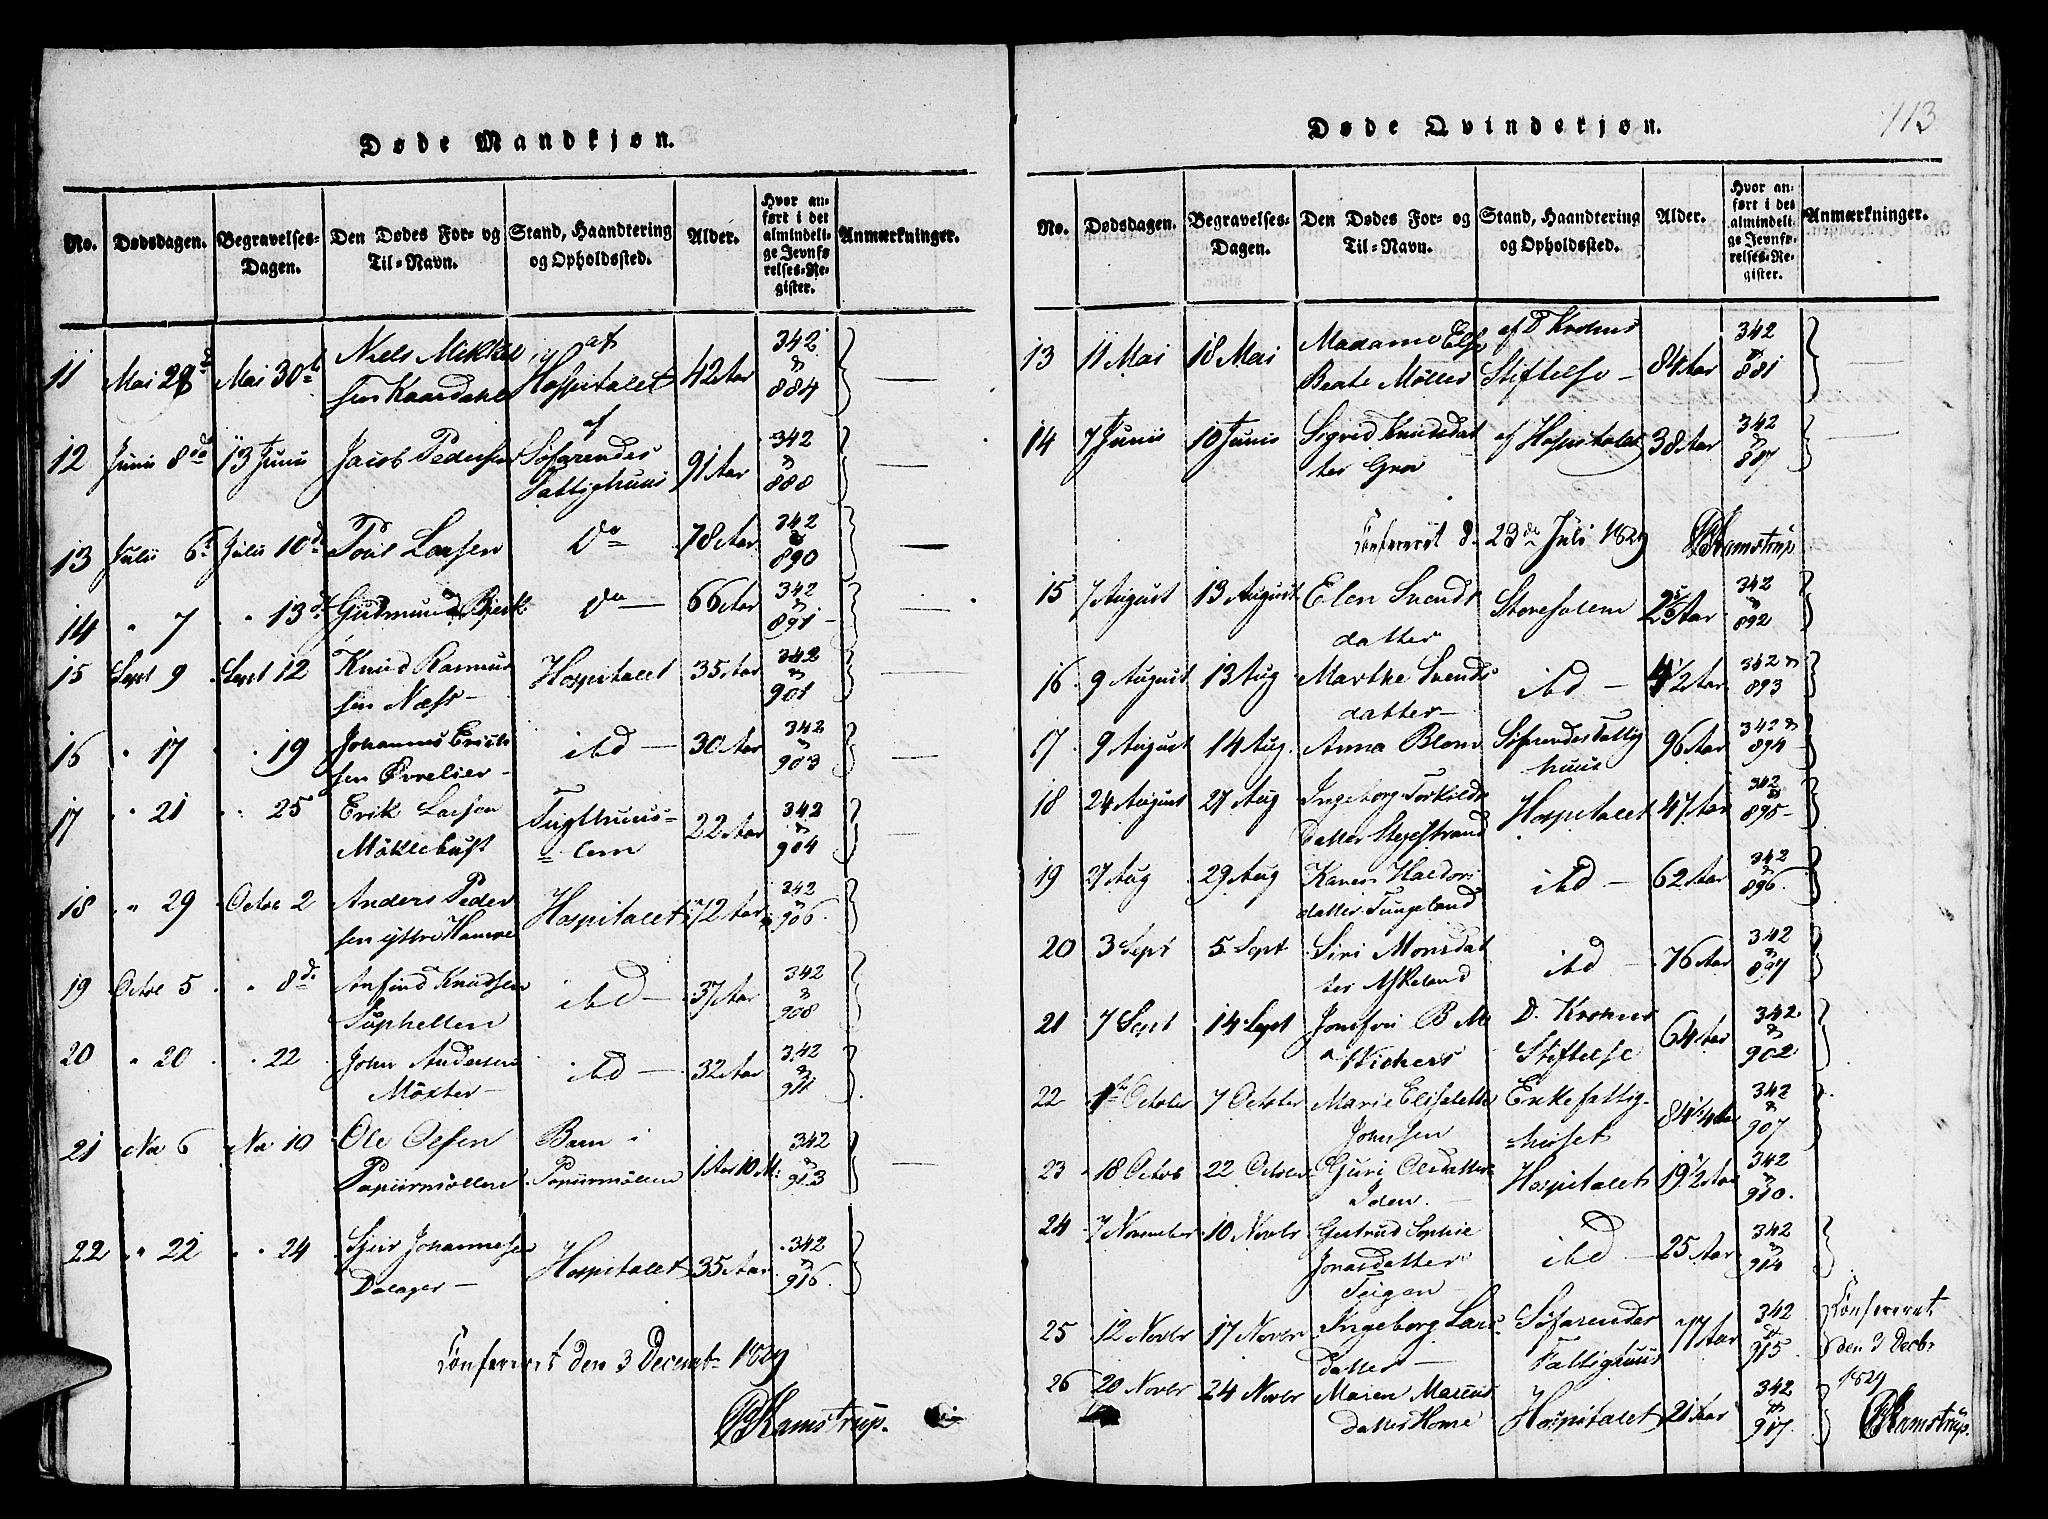 113
Døde Mandkjøn.
No. Dødsdagen. Begravelses-Dagen. Den Dødes For- og Til-Navn. Stand, Haandtering og Opholdssted. Alder. Hvor anført i det almindelige Jevnførelses-Register. Anmærkninger.
11 Mai 28d Mai 30te Niels Mikkel af 42 Aar 342
sen Kaardahl Hospitalet 884
12 Junii 8de 13 Junii Jacob Pedersen af Søfarendes 91 Aar 342
Fattighuus 888
13 Julii 6t Julii 10de Poul Larsen Do 78 Aar 342
890
14 " 7 " 13de Gudmund Bjerk Do 66 Aar 342
891
15 Sept 9 Sept 12 Knud Rasmus Hospitalet 35 Aar 342
sen Næss 901
16 " 17 " 19 Johannes Erich ibd 30 Aar 342
sen 903
17 " 21 " 25 Erik Larsen Tugthuus= 22 Aar 342
Möklebust =lem 904
18 " 29 Octbe 2 Anders Peder Hospitalet 72 Aar 342
sen yttre Hamre 906
19 Octbe 5 " 8de Anfind Knudsen ibd 37 Aar 342
Suphellen 908
20 " 20 " 22 John Andersen ibd 32 Aar 342
Möxter 911
21 Nov 6 Nov 10 Ole Olsen Barn i 1 Aar 10 M: 342
Papiirmöllen Papiirmöllen 913
22 " 22 " 24 Sjur Johannesen Hospitalet 35 Aar 342
Dalager 916
Confereret den 3 Decembr 1829
Ramstrup.
Døde Qvindekjøn.
No. Dødsdagen. Begravelses-Dagen. Den Dødes For- og Til-Navn. Stand, Haandtering og Opholdssted. Alder. Hvor anført i det almindelige Jevnførelses-Register. Anmærkninger.
13 11 Mai 18 Mai Madame Else af D Krohns 84 Aar 342
Beate Möller Stiftelse 881
14 7 Junii 10 Junii Sigrid Knudsdat af Hospitalet 38 Aar 342
ter Groe 887
Confereret d: 23de Juli 1829 Ramstrup
15 7 August 13 August Elen Svends Storesalem Aar 342
datter 892
16 9 August 13 Aug Marthe Svends ibd 4 1/2 Aar 342
datter 893
17 9 August 14 Aug. Anna Blom Söfarendesfattig 96 Aar 342
huus 894
18 24 August 27 Aug Ingeborg Torkilds Hospitalet 47 Aar 342
datter Stegestrand 895
19 27 Aug 29 Aug Karen Haldors ibd 62 Aar 342
datter Tungeland 896
20 3 Sept 5 Sept Siri Monsdat ibd 76 Aar 342
ter Askeland 897
21 7 Sept 14 Sept Jomfru B M D. Krohns 64 Aar 342
Wichers Stiftelse 902
22 1st October 7 October Marie Elisabeth Enkefattig- 84 1/4 Aar 342
Johnsen huset 907
23 18 Octob 22 October Guri Olsdatter Hospitalet 19 1/2 Aar 342
Iden 910
24 7 November 10 Novbr Gertrud Sophie ibd 25 Aar 342
Jonasdatter 914
Teigen
25 12 Novbr 17 Novbr Ingeborg Lars Söfarendes 77 Aar 342 Confereret
datter Fattighuus 915 den 3 Decbr
26 20 Novbr 24 Novbr Maren Marcus Hospitalet 21 Aar 342 1829
datter Horne 917 Ramstrup.